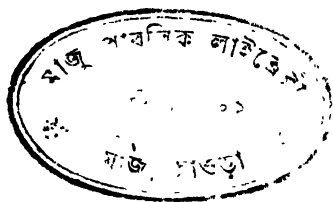 মাজু পাবলিক লাইব্রেরী
মাজু, হাওড়া